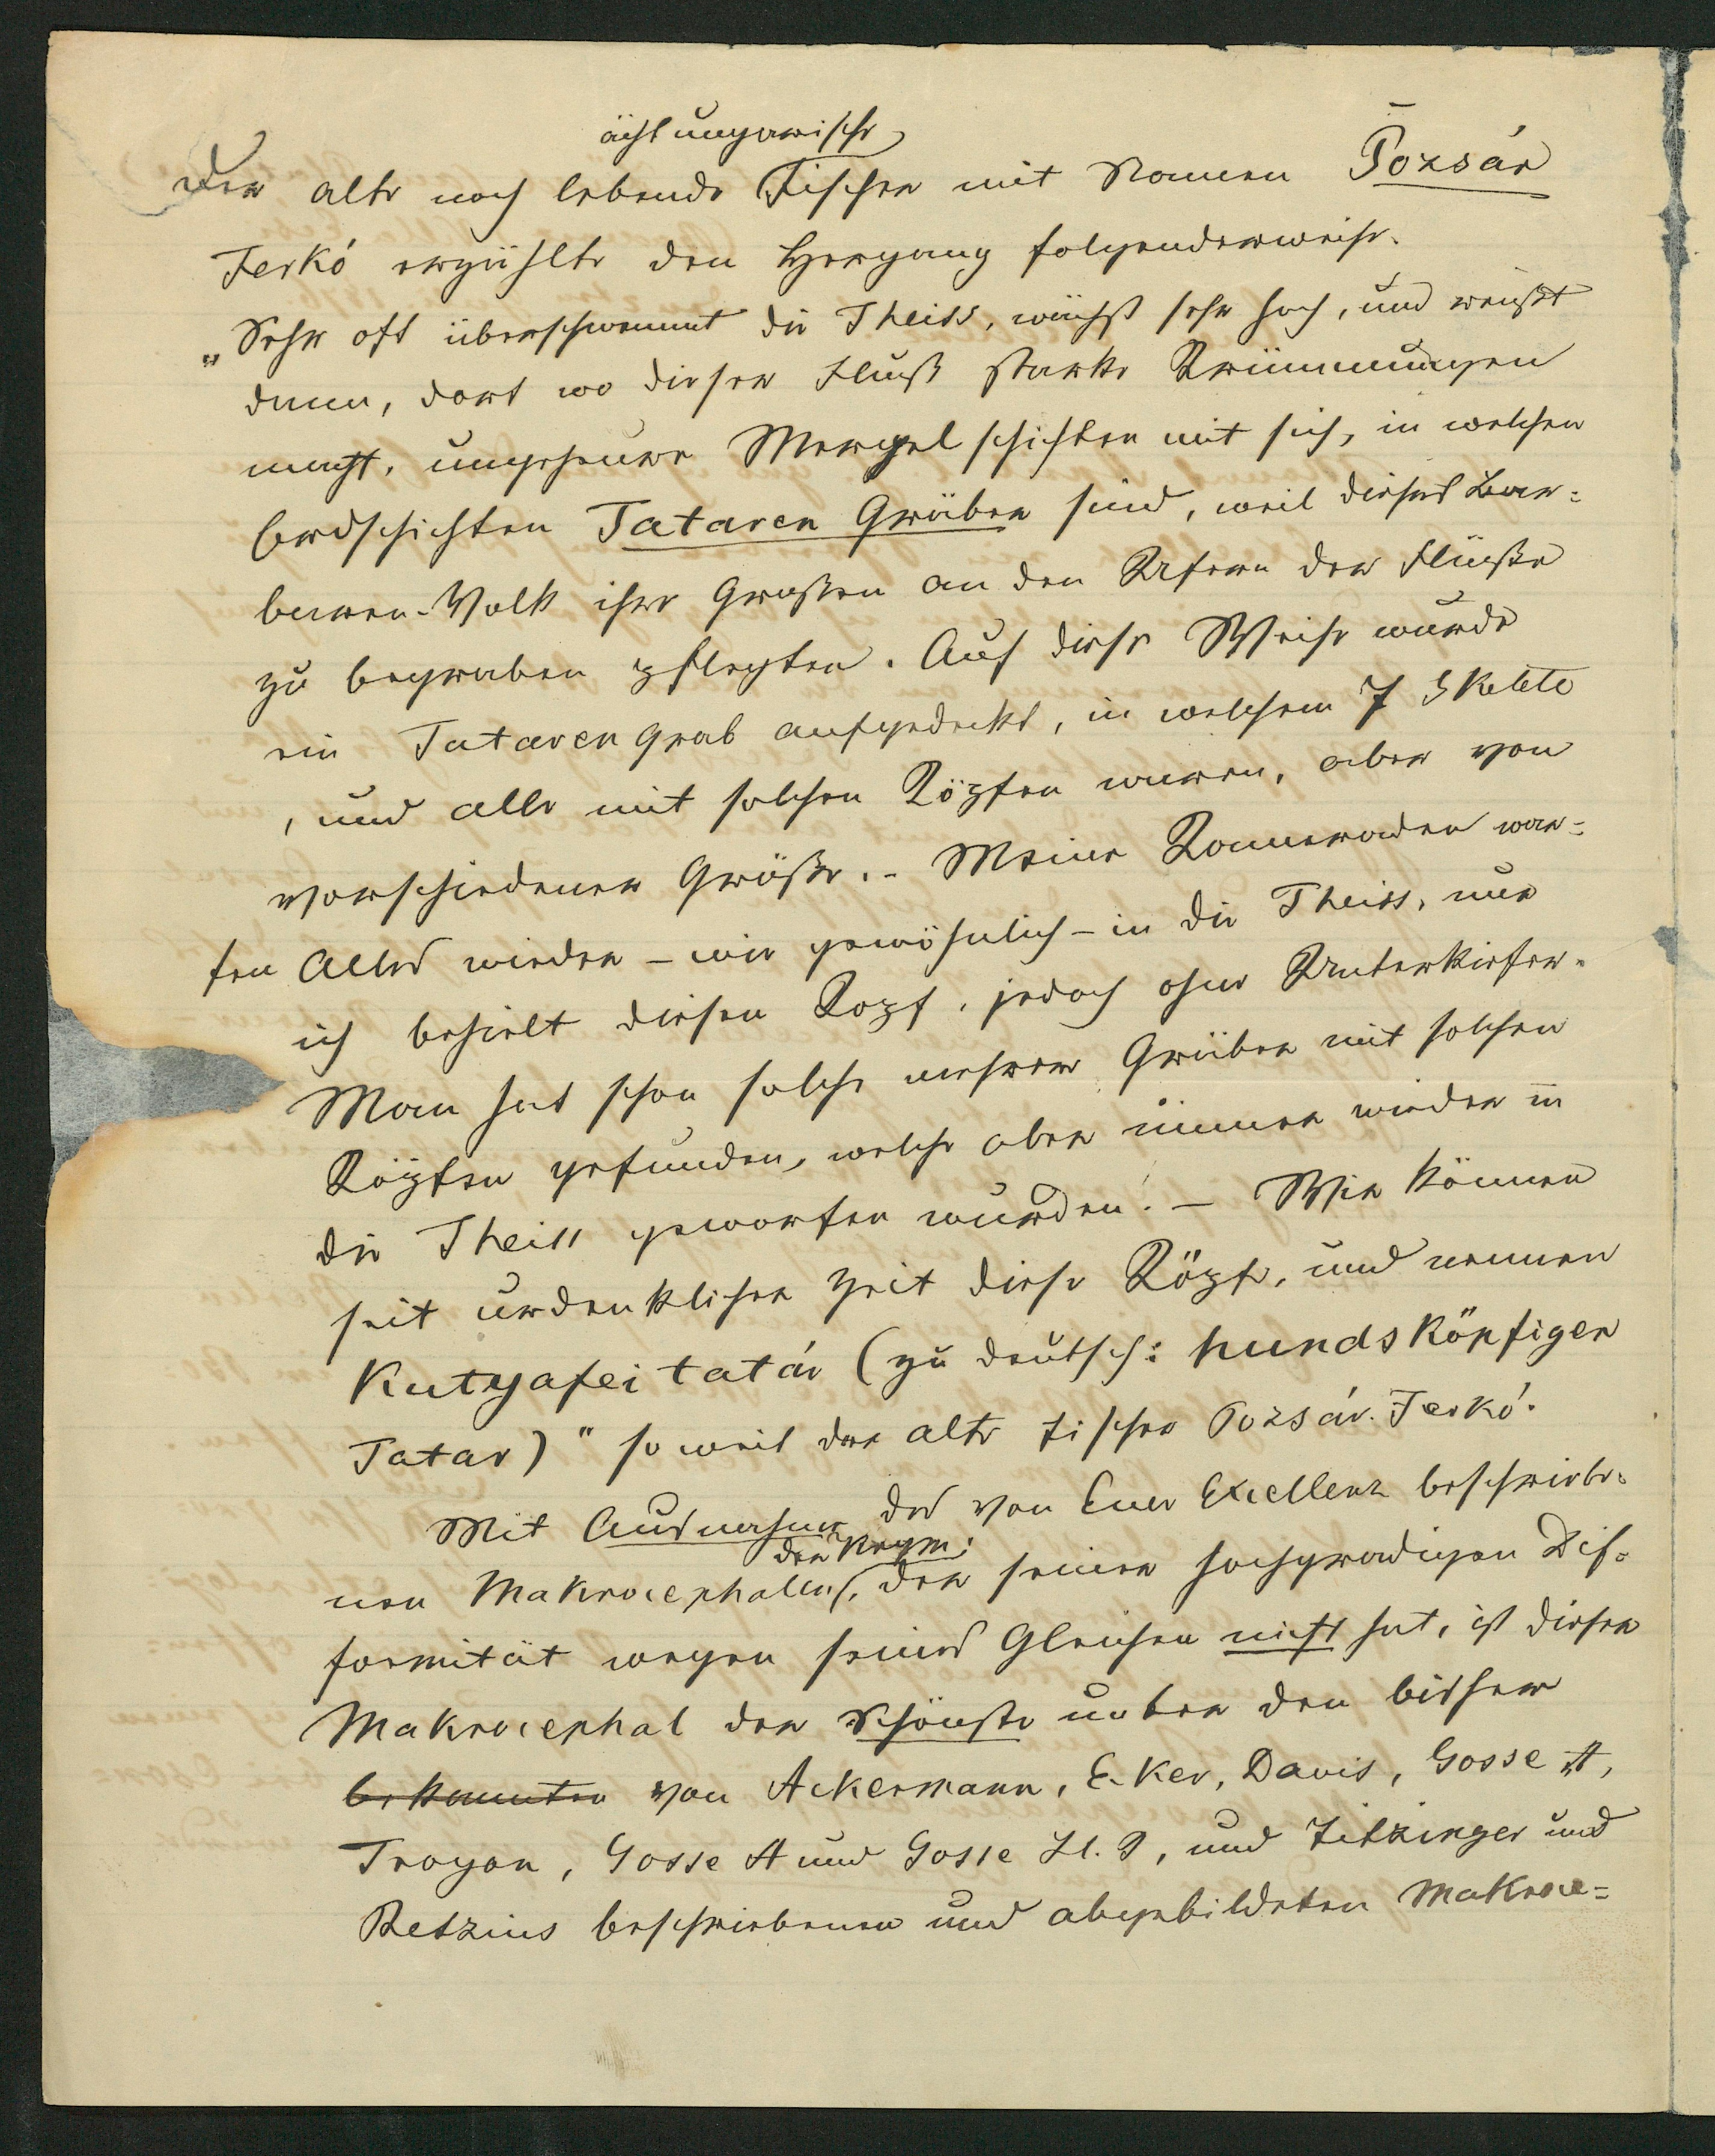 ächt ungarische
Der alte noch lebende Fischer mit Namen Pozsár
Ferkó erzählte den Hergang folgenderweise.
„Sehr oft überschwemmt die Theiss, wächst sehr hoch, und reißt
dann, dort wo dieser Fluß starke Krümmungen
macht, ungeheure Mergelschichten mit sich, in welchen
Erdschichten Tataren Gräber sind, weil dieses Bar-
baren-Volk ihre Großen an den Ufern der Flüße
zu begraben pflegten. Auf diese Weise wurde
ein Tataren grab aufgedeckt, in welchem 7 Skelete
, und alle mit solchen Köpfen waren, aber von
verschiedener Größe. – Meine Kameraden war-
fen Alles wieder – wie gewöhnlich – in die Theiss, nur
ich behielt diesen Kopf, jedoch ohne Unterkiefer.
Man hat schon solche mehrere Gräber mit solchen
Köpfen gefunden, welche aber immer wieder in
die Theiss geworfen wurden. – Wir kennen
seit undenklicher Zeit diese Köpfe, und nennen
Kutyafei tatár (zu deutsch: hundsköpfiger
Tatar)" so weit der alte Fischer Pozsár Ferkó.
Mit Ausnahme des von Euer Excellenz beschriebe-
der Krym:
nen Makrocephalus, der seiner hochgradigen Dif-
formität wegen seines Gleichen nicht hat, ist dieser
Makrocephal der schönste unter den bisher
bekannten von Ackermann, Ecker, Davis, Gosse A,
Troyon, Gosse A und Gosse H. J, und Fitzinger und
Retzius beschriebenen und abgebildeten Makroce-